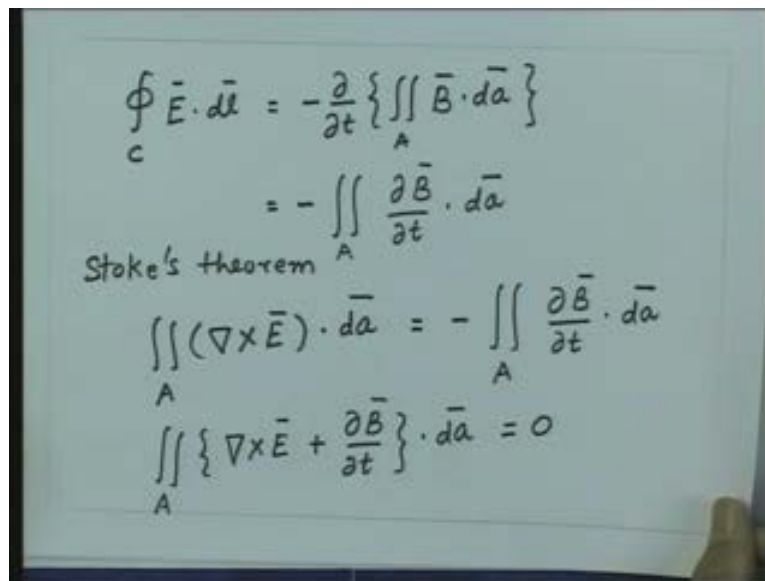 ∮_C Ē · dl̄ = -∂/∂t {∬_A B̄ · dā}
= - ∬_A ∂B̄/∂t · dā
Stoke's theorem
∬_A (∇×Ē) · dā = - ∬_A ∂B̄/∂t · dā
∬_A {∇×Ē + ∂B̄/∂t} · dā = 0